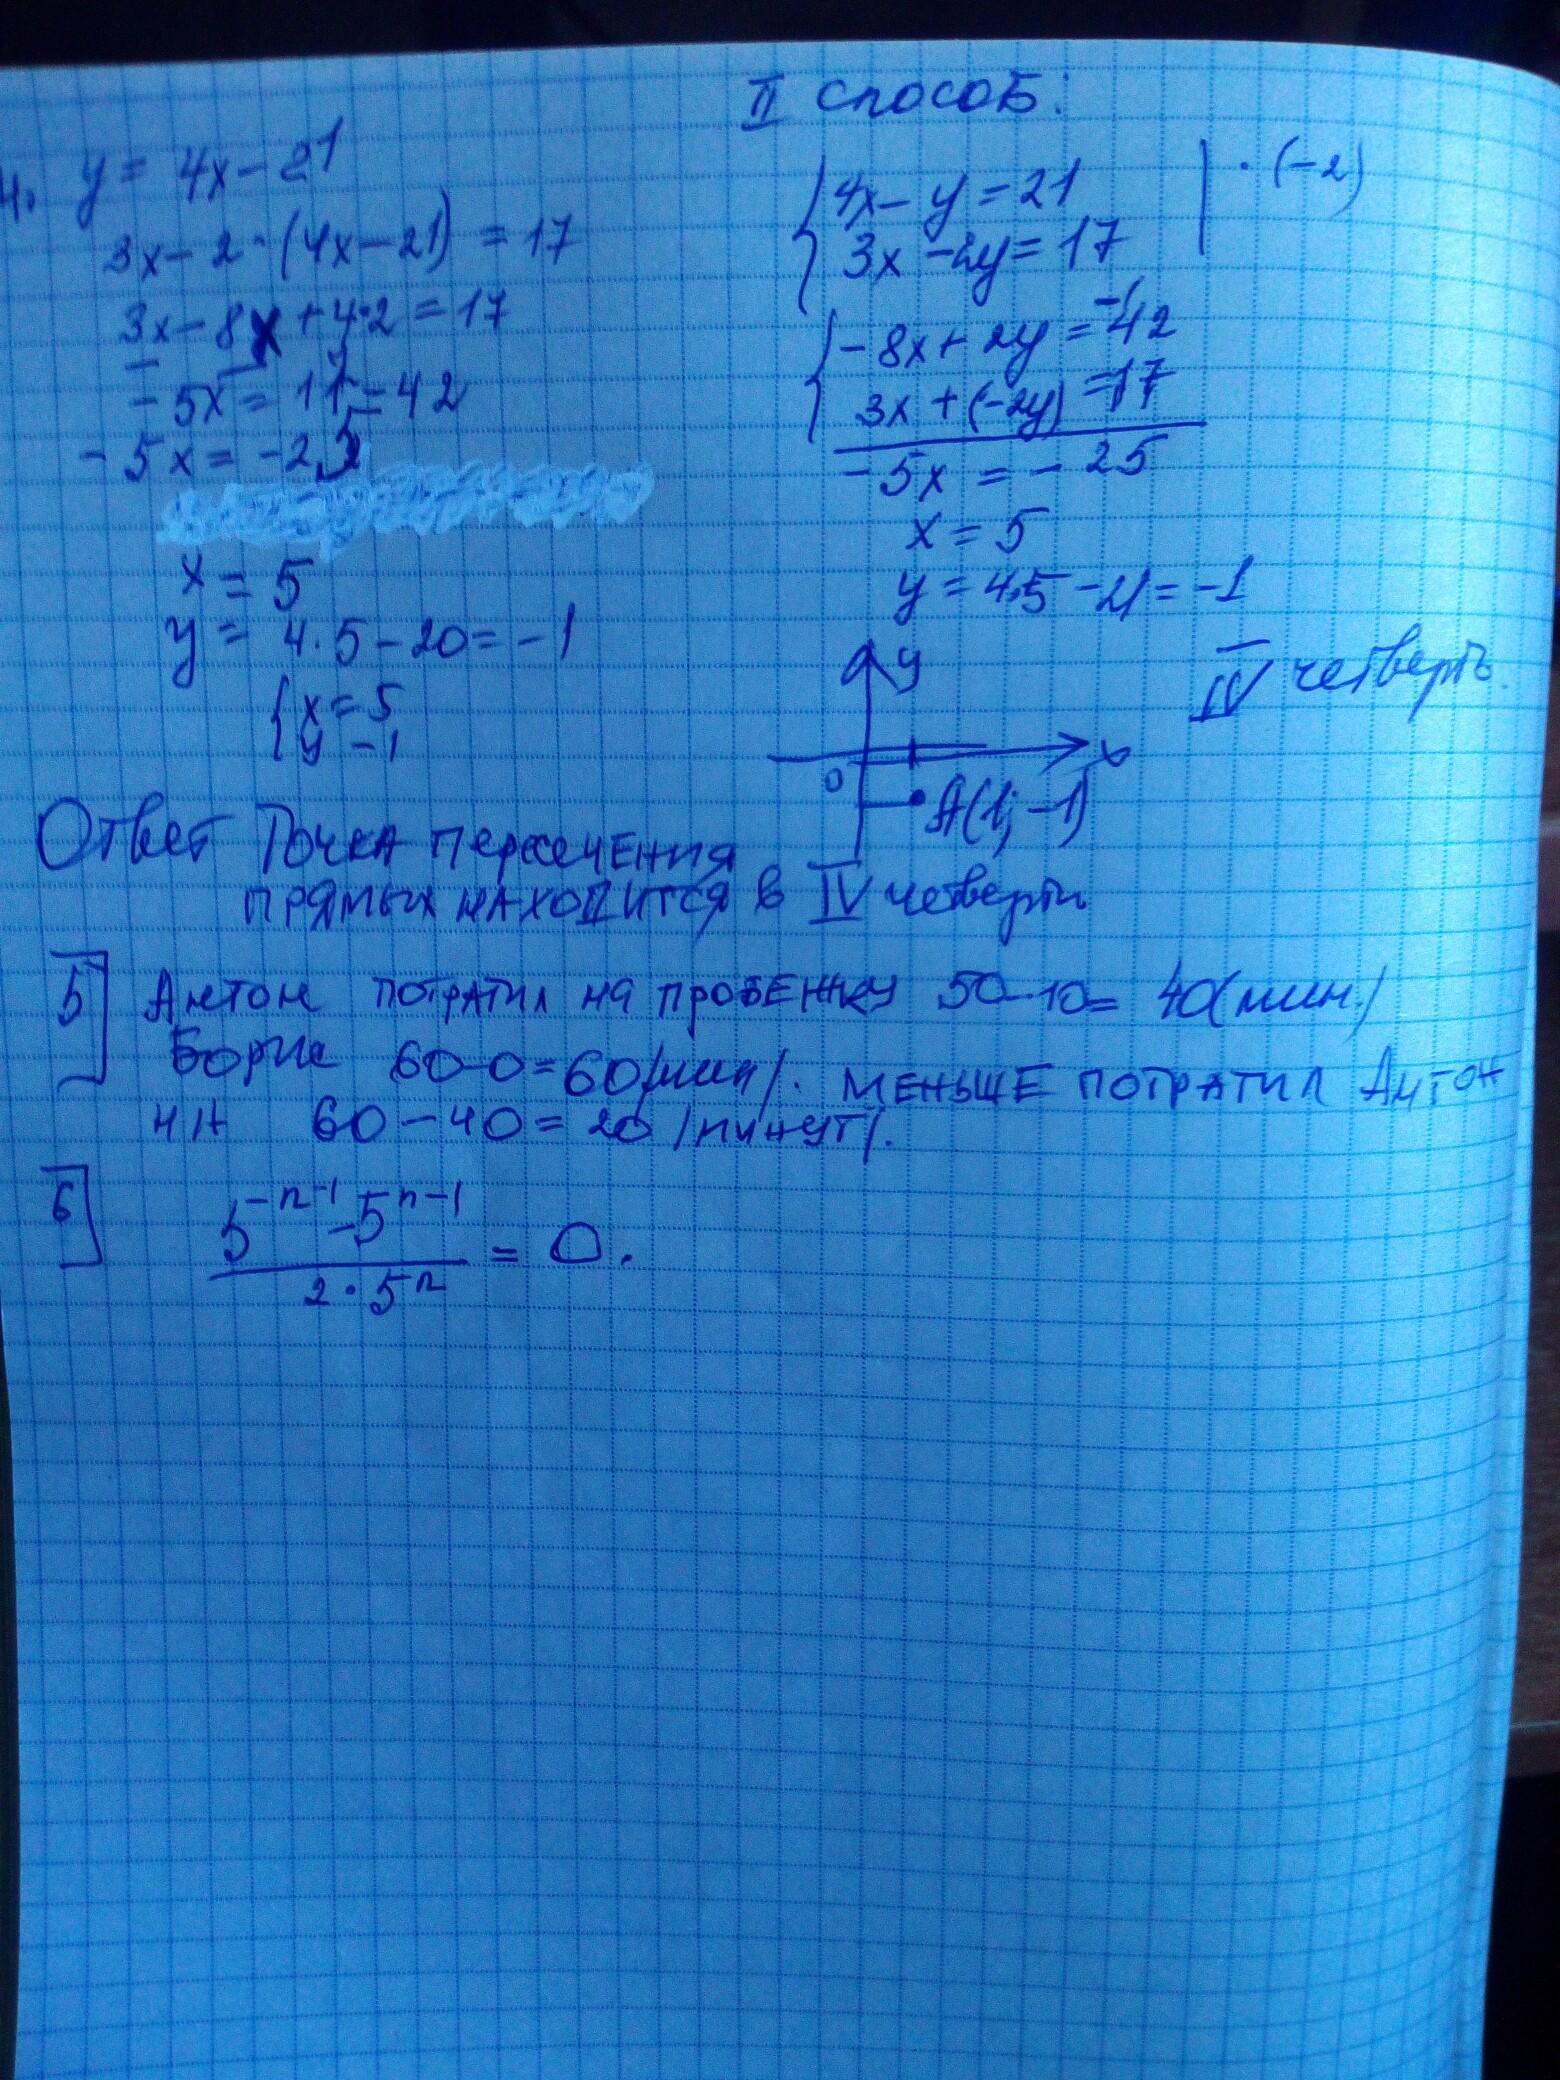 4. y = 4x - 21
3x - 2 · (4x - 21) = 17
3x - 8x + 4·2 = 17
- 5x = 17 - 42
- 5x = -25
x = 5
y = 4·5 - 20 = -1
{ x = 5
y -1
II способ:
{ 4x - y = 21 | · (-2)
3x - 2y = 17
{ -8x + 2y = -42
3x + (-2y) = 17
-5x = -25
x = 5
y = 4·5 - 21 = -1
IV четверть.
y
0 x
A(1; -1)
Ответ Точка пересечения
прямых находится в IV четверти
5] Антон потратил на пробежку 50-10= 40(мин.)
Борис 60-0=60(мин). меньше потратил Антон
на 60-40=20 (минут).
6] (5^{-n-1} - 5^{n-1}) / (2·5^n) = 0.